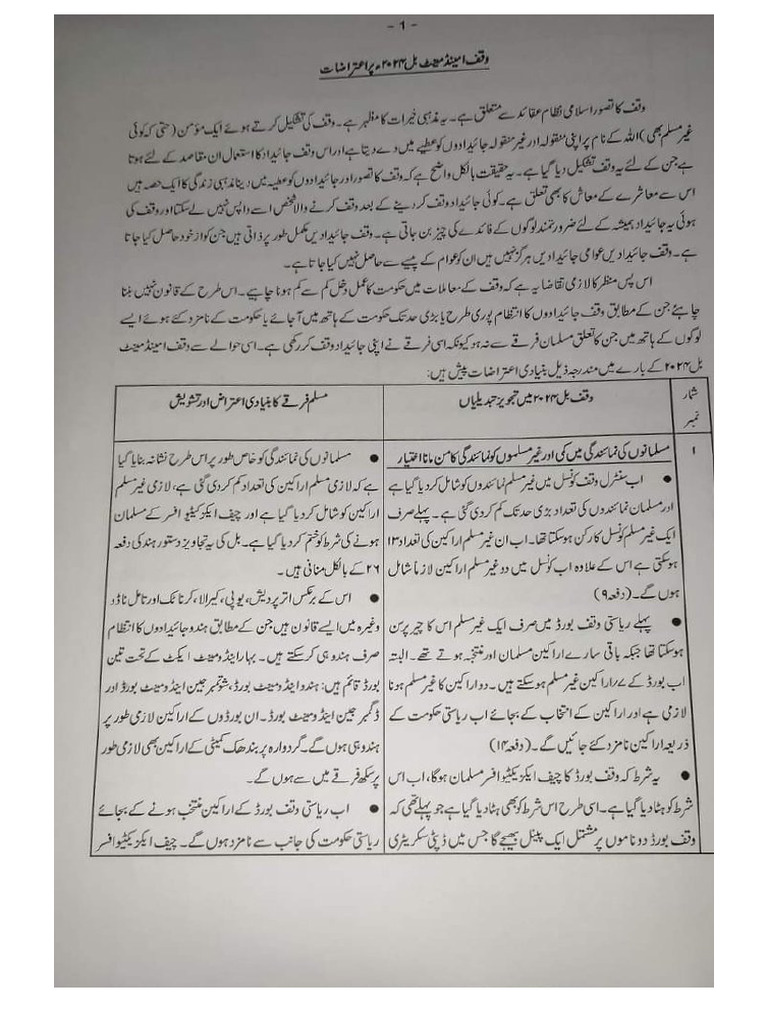 - 1 -
وقف امینڈمینٹ بل ۲۰۲۴ء پر اعتراضات
وقف کا تصور اسلامی نظام عقائد سے متعلق ہے۔ یہ مذہبی خیرات کا مظہر ہے۔ وقف کی تشکیل کرتے ہوئے ایک مؤمن (حتی کہ کوئی
غیر مسلم بھی) اللہ کے نام پر اپنی منقولہ اور غیر منقولہ جائیدادوں کو عطیے میں دے دیتا ہے اور اس وقف جائیداد کا استعمال ان مقاصد کے لئے ہوتا
ہے جن کے لئے یہ وقف تشکیل دیا گیا ہے۔ یہ حقیقت بالکل واضح ہے کہ وقف کا تصور اور جائیدادوں کو عطیہ میں دینا مذہبی زندگی کا ایک حصہ ہیں
اس سے معاشرے کے معاش کا بھی تعلق ہے۔ کوئی جائیداد وقف کر دینے کے بعد وقف کرنے والا شخص اسے واپس نہیں لے سکتا اور وقف کی
ہوئی یہ جائیداد ہمیشہ کے لئے ضرورتمند لوگوں کے فائدے کی چیز بن جاتی ہے۔ وقف جائیدادیں مکمل طور پر ذاتی ہیں جن کو از خود حاصل کیا جاتا
ہے۔ وقف جائیدادیں عوامی جائیدادیں ہرگز نہیں ہیں ان کو عوام کے پیسے سے حاصل نہیں کیا جاتا ہے۔
اس پس منظر کا لازمی تقاضا یہ ہے کہ وقف کے معاملات میں حکومت کا عمل دخل کم سے کم ہونا چاہیے۔ اس طرح کے قانون نہیں بننا
چاہئے جن کے مطابق وقف جائیدادوں کا انتظام پوری طرح یا بڑی حد تک حکومت کے ہاتھ میں آ جائے یا حکومت کے نامزد کئے ہوئے ایسے
لوگوں کے ہاتھ میں جن کا تعلق مسلمان فرقے سے نہ ہو کیونکہ اسی فرقے نے اپنی جائیداد وقف کر رکھی ہے۔ اسی حوالے سے وقف امینڈمینٹ
بل ۲۰۲۴ کے بارے میں مندرجہ ذیل بنیادی اعتراضات پیش ہیں:
شمار
نمبر
وقف بل ۲۰۲۴ میں تجویز تبدیلیاں
مسلم فرقے کا بنیادی اعتراض اور تشویش
۱
مسلمانوں کی نمائندگی میں کمی اور غیر مسلموں کو نمائندگی کا من مانا اختیار
● اب سنٹرل وقف کونسل میں غیر مسلم نمائندوں کو شامل کر دیا گیا ہے
اور مسلمان نمائندوں کی تعداد بڑی حد تک کم کر دی گئی ہے۔ پہلے صرف
ایک غیر مسلم کونسل کا رکن ہو سکتا تھا۔ اب ان غیر مسلم اراکین کی تعداد ۱۳
ہو سکتی ہے اس کے علاوہ اب کونسل میں دو غیر مسلم اراکین لازماً شامل
ہوں گے۔ (دفعہ ۹)
● پہلے ریاستی وقف بورڈ میں صرف ایک غیر مسلم اس کا چیئر پرسن
ہو سکتا تھا جبکہ باقی سارے اراکین مسلمان اور منتخبہ ہوتے تھے۔ البتہ
اب بورڈ کے ۷ اراکین غیر مسلم ہو سکتے ہیں۔ دو اراکین کا غیر مسلم ہونا
لازمی ہے اور اراکین کے انتخاب کے بجائے اب ریاستی حکومت کے
ذریعہ اراکین نامزد کئے جائیں گے۔ (دفعہ ۱۴)
● یہ شرط کہ وقف بورڈ کا چیف ایکزیکیٹیو افسر مسلمان ہوگا، اب اس
شرط کو ہٹا دیا گیا ہے۔ اسی طرح اس شرط کو بھی ہٹا دیا گیا ہے جو پہلے تھی کہ
وقف بورڈ دو ناموں پر مشتمل ایک پینل بھیجے گا جس میں ڈپٹی سکریٹری
● مسلمانوں کی نمائندگی کو خاص طور پر اس طرح نشانہ بنایا گیا
ہے کہ لازمی مسلم اراکین کی تعداد کم کر دی گئی ہے، لازمی غیر مسلم
اراکین کو شامل کر دیا گیا ہے اور چیف ایکزیکیٹیو افسر کے مسلمان
ہونے کی شرط کو ختم کر دیا گیا ہے۔ بل کی یہ تجاویز دستور ہند کی دفعہ
۲۶ کے بالکل منافی ہیں۔
● اس کے برعکس اتر پردیش، یوپی، کیرالا، کرناٹک اور تامل ناڈو
وغیرہ میں ایسے قانون ہیں جن کے مطابق ہندو جائیدادوں کا انتظام
صرف ہندو ہی کر سکتے ہیں۔ بہار اینڈومینٹ ایکٹ کے تحت تین
بورڈ قائم ہیں: ہندو اینڈومینٹ بورڈ، شوتمبر جین اینڈومینٹ بورڈ اور
ڈگمبر جین اینڈومینٹ بورڈ۔ ان بورڈوں کے اراکین لازمی طور پر
ہندو ہی ہوں گے۔ گردوارہ پربندھک کمیٹی کے اراکین بھی لازمی طور
پر سکھ فرقے میں سے ہوں گے۔
● اب ریاستی وقف بورڈ کے اراکین منتخب ہونے کے بجائے
ریاستی حکومت کی جانب سے نامزد ہوں گے۔ چیف ایکزیکیٹیو افسر